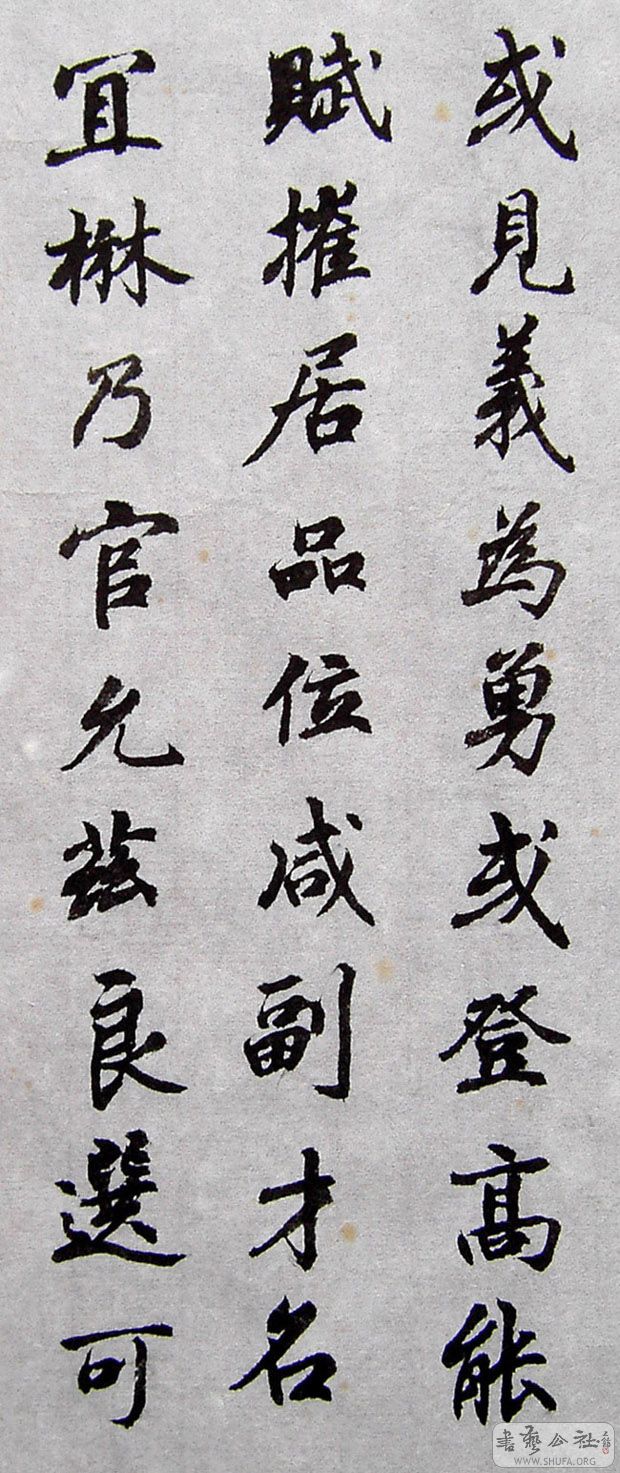 或見義為勇或登髙能
賦擢居品位咸副才名
宜楙乃官允茲良選可
書藝公社
WWW.SHUFA.ORG